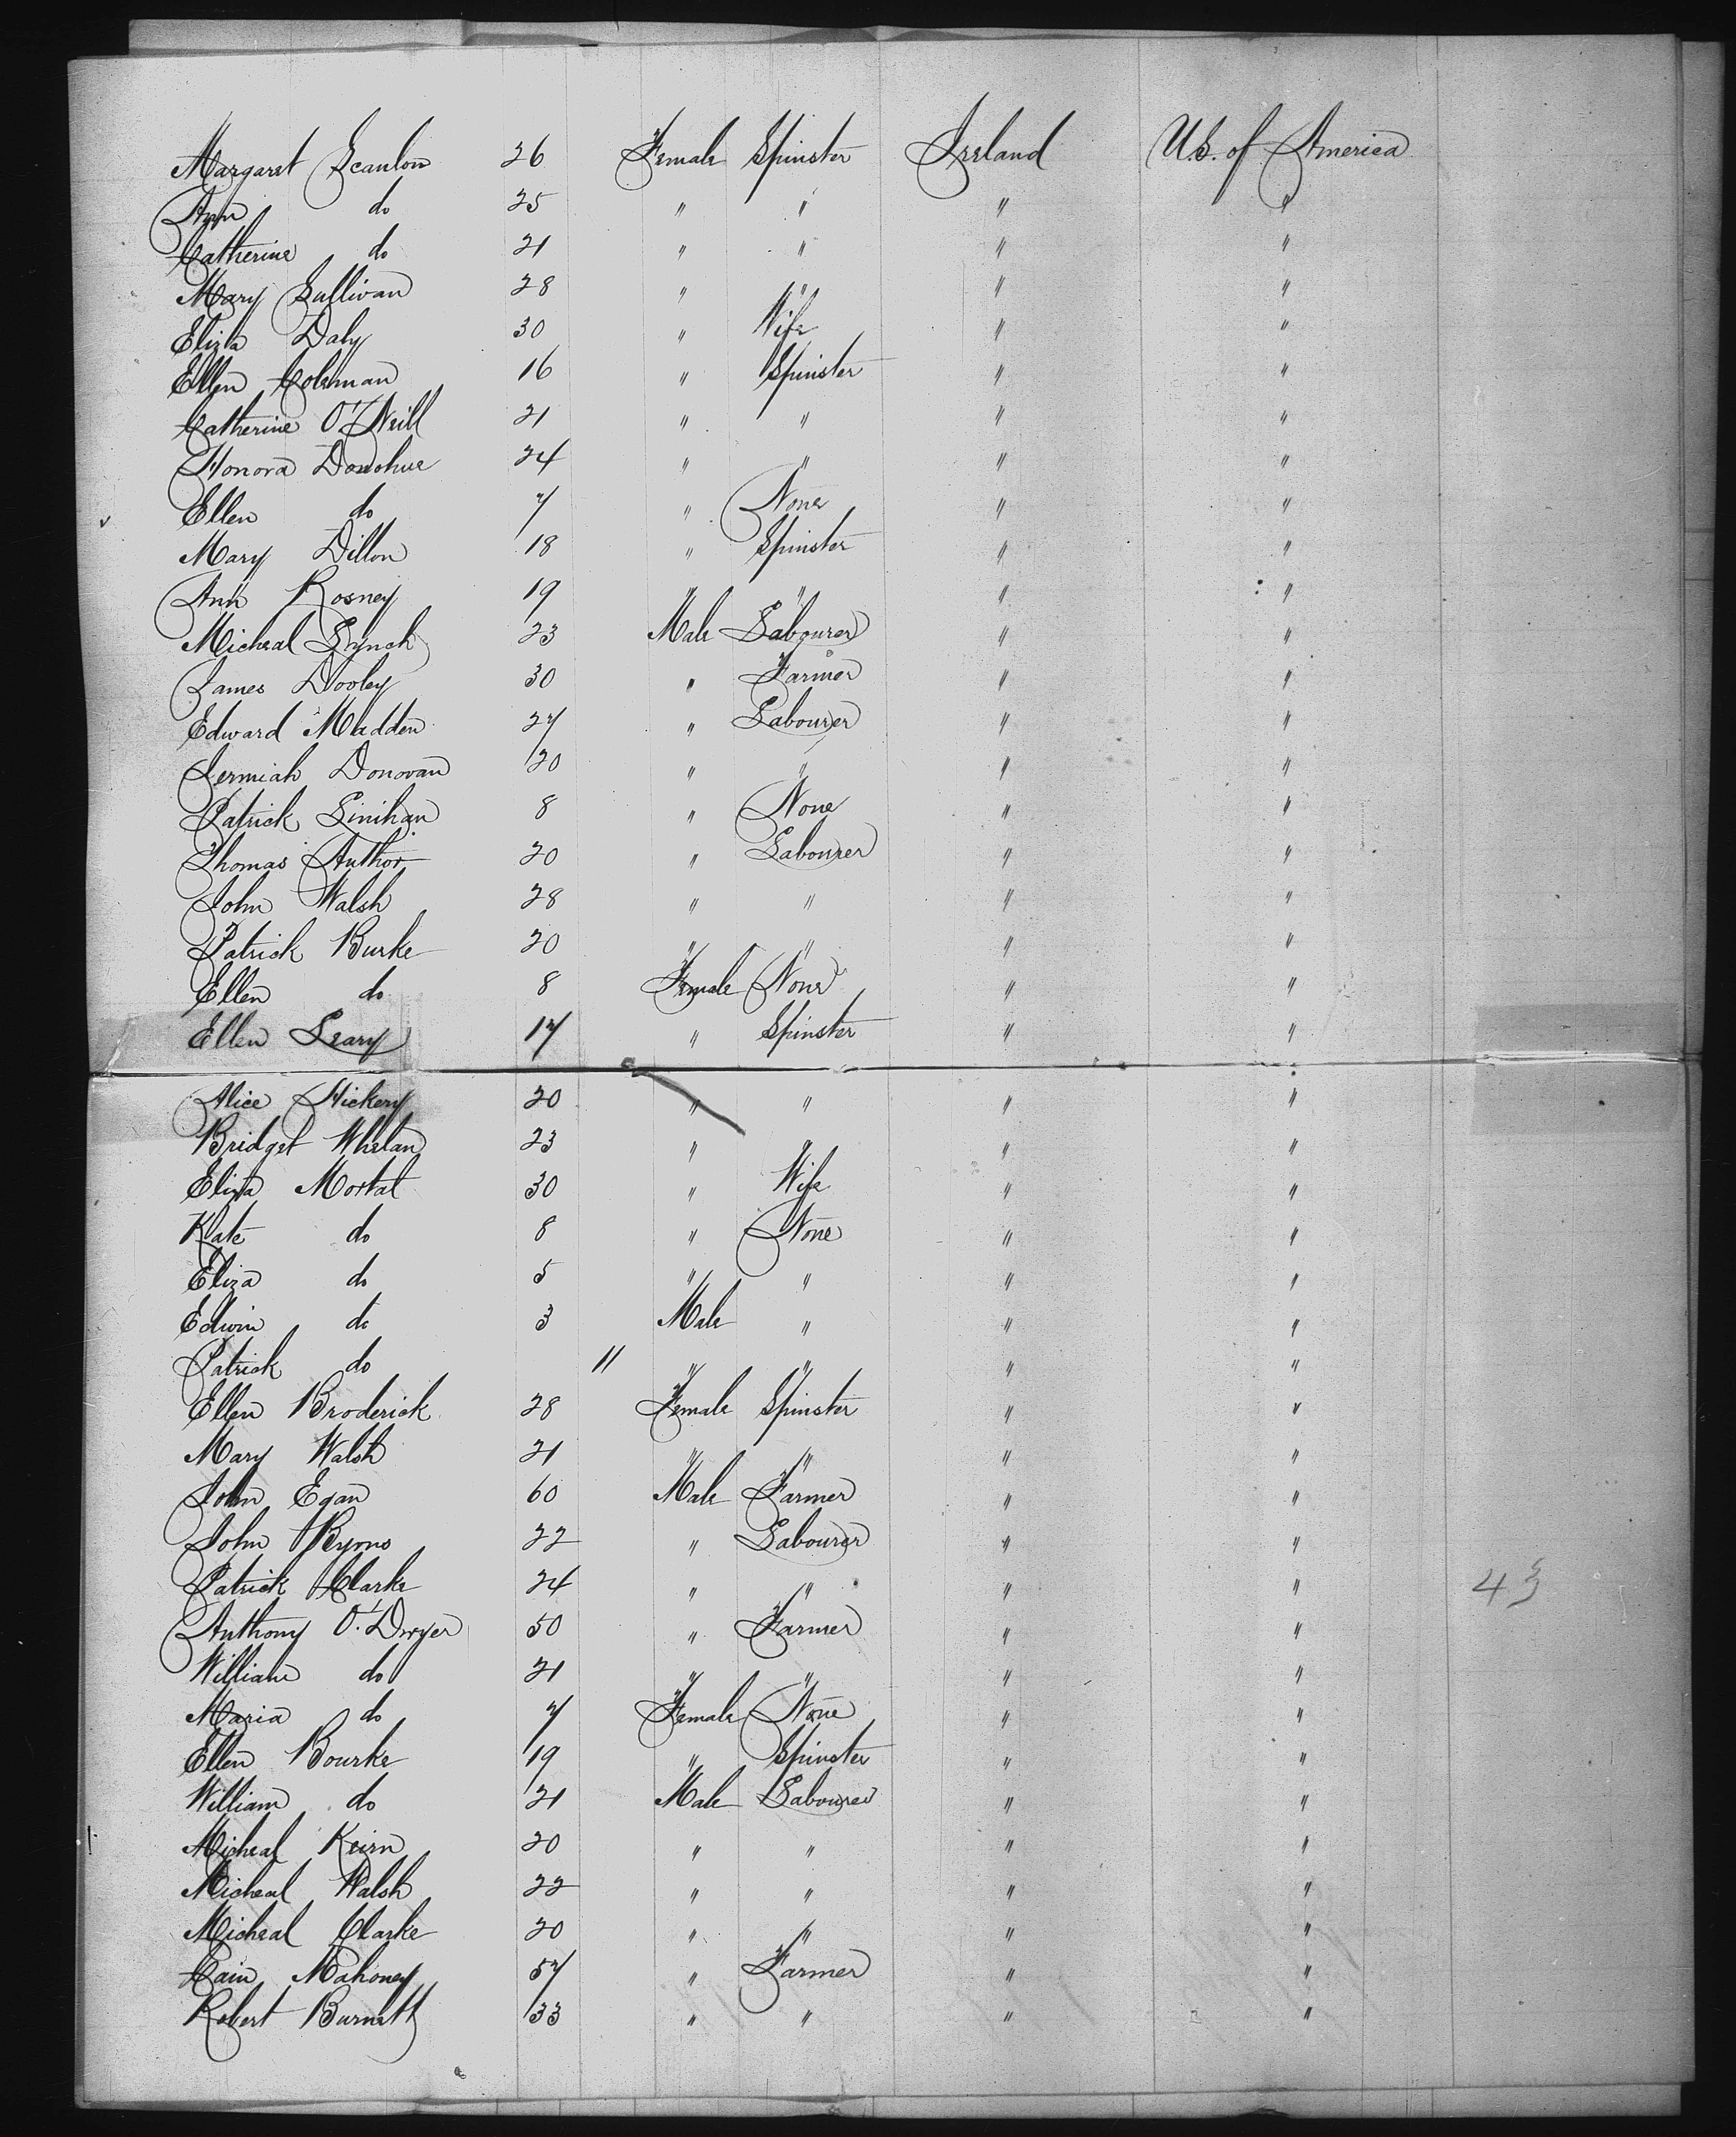 Margaret Scanlon 26 Female Spinster Ireland U.S. of America
Ann do 25 " " " "
Catherine do 21 " " " "
Mary Sullivan 28 " " " "
Eliza Daly 30 " Wife " "
Ellen Coleman 16 " Spinster " "
Catherine O'Neill 21 " " " "
Honora Donohue 24 " " " "
Ellen do 7 " None " "
Mary Dillon 18 " Spinster " "
Ann Rosney 19 " " " "
Micheal Lynch 23 Male Labourer " "
James Dooley 30 " Farmer " "
Edward Madden 27 " Labourer " "
Jermiah Donovan 20 " " " "
Patrick Linihan 8 " None " "
Thomas Author 20 " Labourer " "
John Walsh 28 " " " "
Patrick Burke 20 " " " "
Ellen do 8 Female None " "
Ellen Leary 17 " Spinster " "
Alice Hickery 20 " " " "
Bridget Whelan 23 " " " "
Eliza Mortal 30 " Wife " "
Kate do 8 " None " "
Eliza do 5 " " " "
Edwin do 3 Male " " "
Patrick do 11 " " " "
Ellen Broderick 28 Female Spinster " "
Mary Walsh 21 " " " "
John Egan 60 Male Farmer " "
John Ryons 22 " Labourer " "
Patrick Clarke 24 " " " " 43
Anthony O'Dwyer 50 " Farmer " "
William do 21 " " " "
Maria do 7 Female None " "
Ellen Bourke 19 " Spinster " "
William do 21 Male Labourer " "
Micheal Keirn 20 " " " "
Micheal Walsh 22 " " " "
Micheal Clarke 20 " " " "
Cain Mahoney 57 " Farmer " "
Robert Burnett 33 " " " "